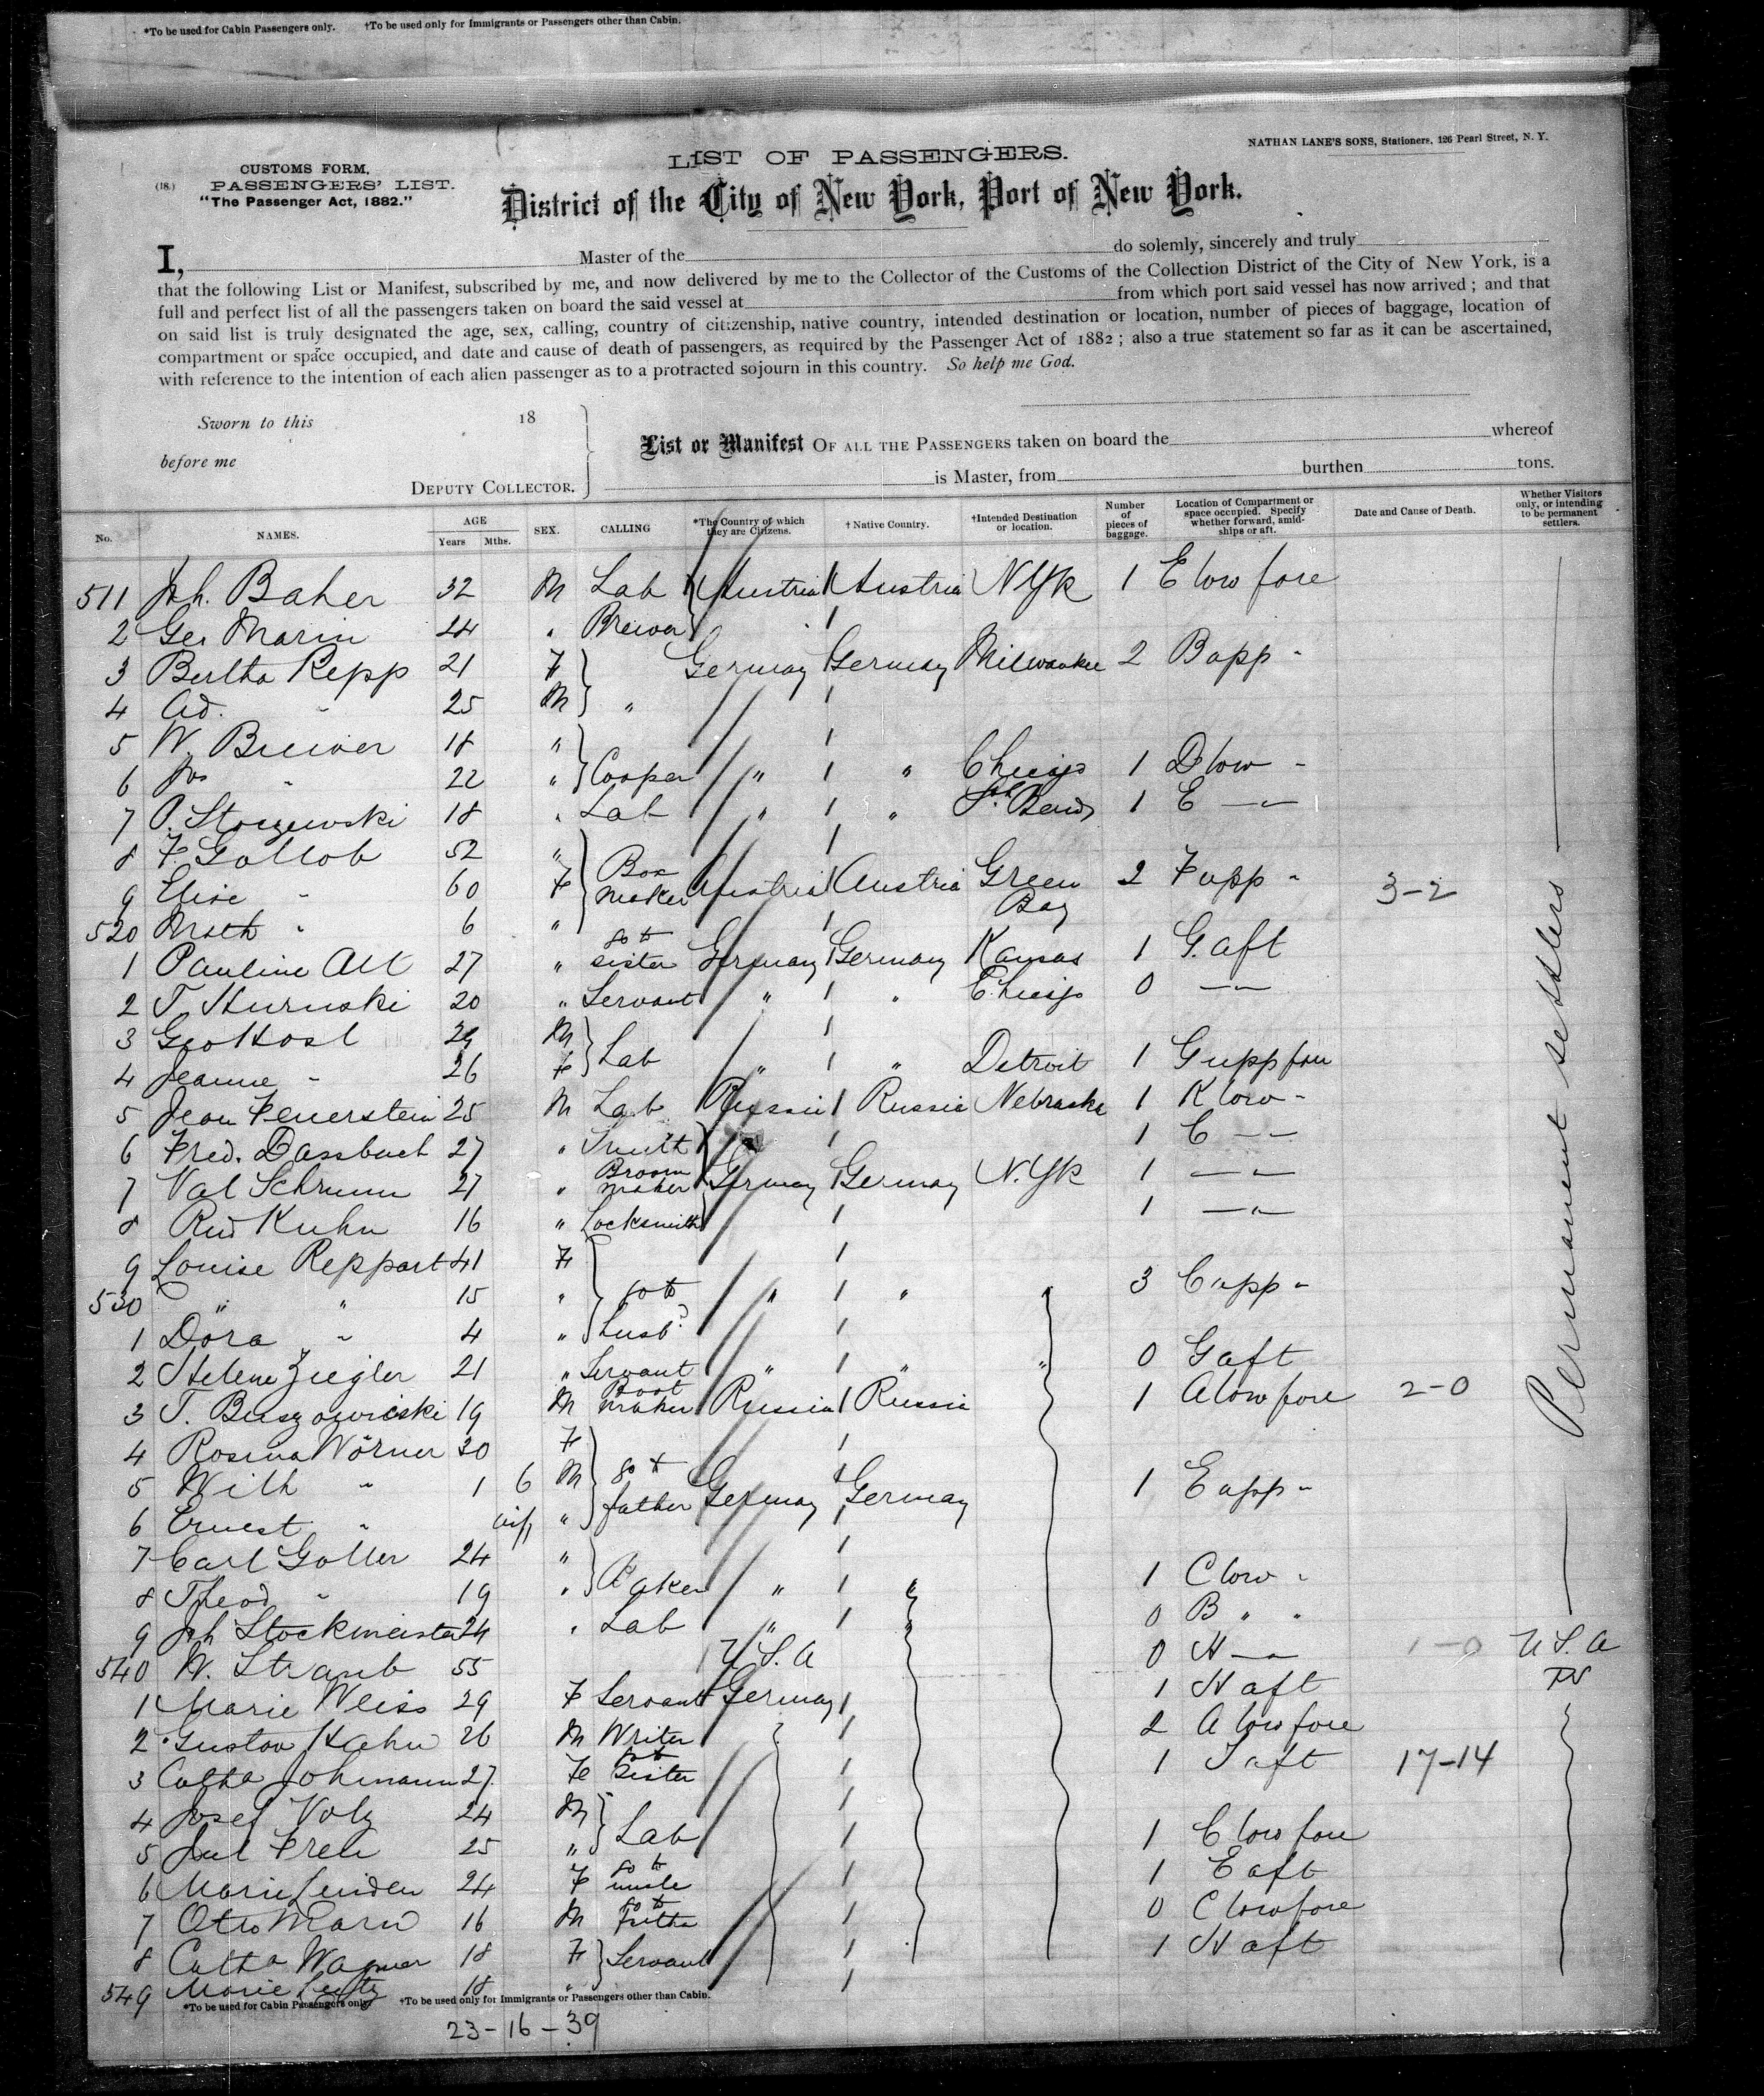 *To be used for Cabin Passengers only. †To be used only for Immigrants or Passengers other than Cabin.
NATHAN LANE'S SONS, Stationers, 126 Pearl Street, N. Y.
(18.) CUSTOMS FORM,
PASSENGERS' LIST.
"The Passenger Act, 1882."
LIST OF PASSENGERS.
District of the City of New York, Port of New York.
I, Master of the do solemly, sincerely and truly
that the following List or Manifest, subscribed by me, and now delivered by me to the Collector of the Customs of the Collection District of the City of New York, is a
full and perfect list of all the passengers taken on board the said vessel at from which port said vessel has now arrived; and that
on said list is truly designated the age, sex, calling, country of citizenship, native country, intended destination or location, number of pieces of baggage, location of
compartment or space occupied, and date and cause of death of passengers, as required by the Passenger Act of 1882; also a true statement so far as it can be ascertained,
with reference to the intention of each alien passenger as to a protracted sojourn in this country. So help me God.
Sworn to this 18
before me
DEPUTY COLLECTOR.
List or Manifest OF ALL THE PASSENGERS taken on board the whereof
is Master, from burthen tons.
No. NAMES. AGE Years Mths. SEX. CALLING *The Country of which they are Citizens. †Native Country. †Intended Destination or location. Number of pieces of baggage. Location of Compartment or space occupied. Specify whether forward, amidships or aft. Date and Cause of Death. Whether Visitors only, or intending to be permanent settlers.
511 Joh. Baher 32 M Lab Austria Austria N Yk 1 E low fore
2 Geo Marin 24 " Brewer
3 Bertha Repp 21 F Germay Germay Milwaukee 2 B app "
4 Ad. " 25 M "
5 W. Breuer 18 "
6 Jos " 22 " Cooper " " Chicago 1 D low "
7 P. 18 " Lab " " 1 E — " —
8 F. Gollob 52 "
9 Elise " 60 F Box maker Austria Austria Green Bay 2 F upp " 3-2
520 Math " 6 "
1 Pauline Alt 27 " go to sister Germany Germany Kansas 1 G. aft
2 T. 20 " Servant " " Chicago 0 — " —
3 Geo Host 29 M
4 Jeanne " 26 F Lab " " Detroit 1 G upp fore
5 Jean Feuerstein 25 M Lab Russia Russia Nebraska 1 K low "
6 Fred. Dassbach 27 " Smith 1 C — " —
7 Val Schrumm 27 " Broom maker Germay Germay N. Yk 1 — " —
8 Rud Kuhn 16 " Locksmith 1 — " —
9 Louise Reppart 41 F
530 " " 15 " go to " " 3 C upp "
1 Dora " 4 " husbd
2 Helene Ziegler 21 " Servant " " " 0 G aft
3 T. 19 M Boot maker Russia Russia 1 A low fore 2-0
4 Rosina Wörner 30 F
5 Wilh " 1 6 M go to father Germay Germay 1 E upp "
6 Ernest " inf "
7 Carl Goller 24 "
8 Theod " 19 " Baker " " 1 C low "
9 Joh Stockmeister 24 " Lab " " 0 B " "
540 W. Straub 55 U. S. A 0 H — " — 1-0 U S. A
1 Marie Weiss 29 F Servant Germay 1 H aft
2 Gustav Hahn 26 M Writer 2 A low fore
3 Catha Johmann 27 Fe go to Sister 1 J aft 17-14
4 Josef Volz 24 M
5 Jul Freli 25 " Lab 1 C low fore
6 Marie Linden 24 F go to uncle 1 E aft
7 Otto 16 M go to 0 C low fore
8 Catha Wagner 18 F Servant 1 H aft
549 Marie 18 "
Permanent settlers
*To be used for Cabin Passengers only. †To be used only for Immigrants or Passengers other than Cabin.
23-16-39